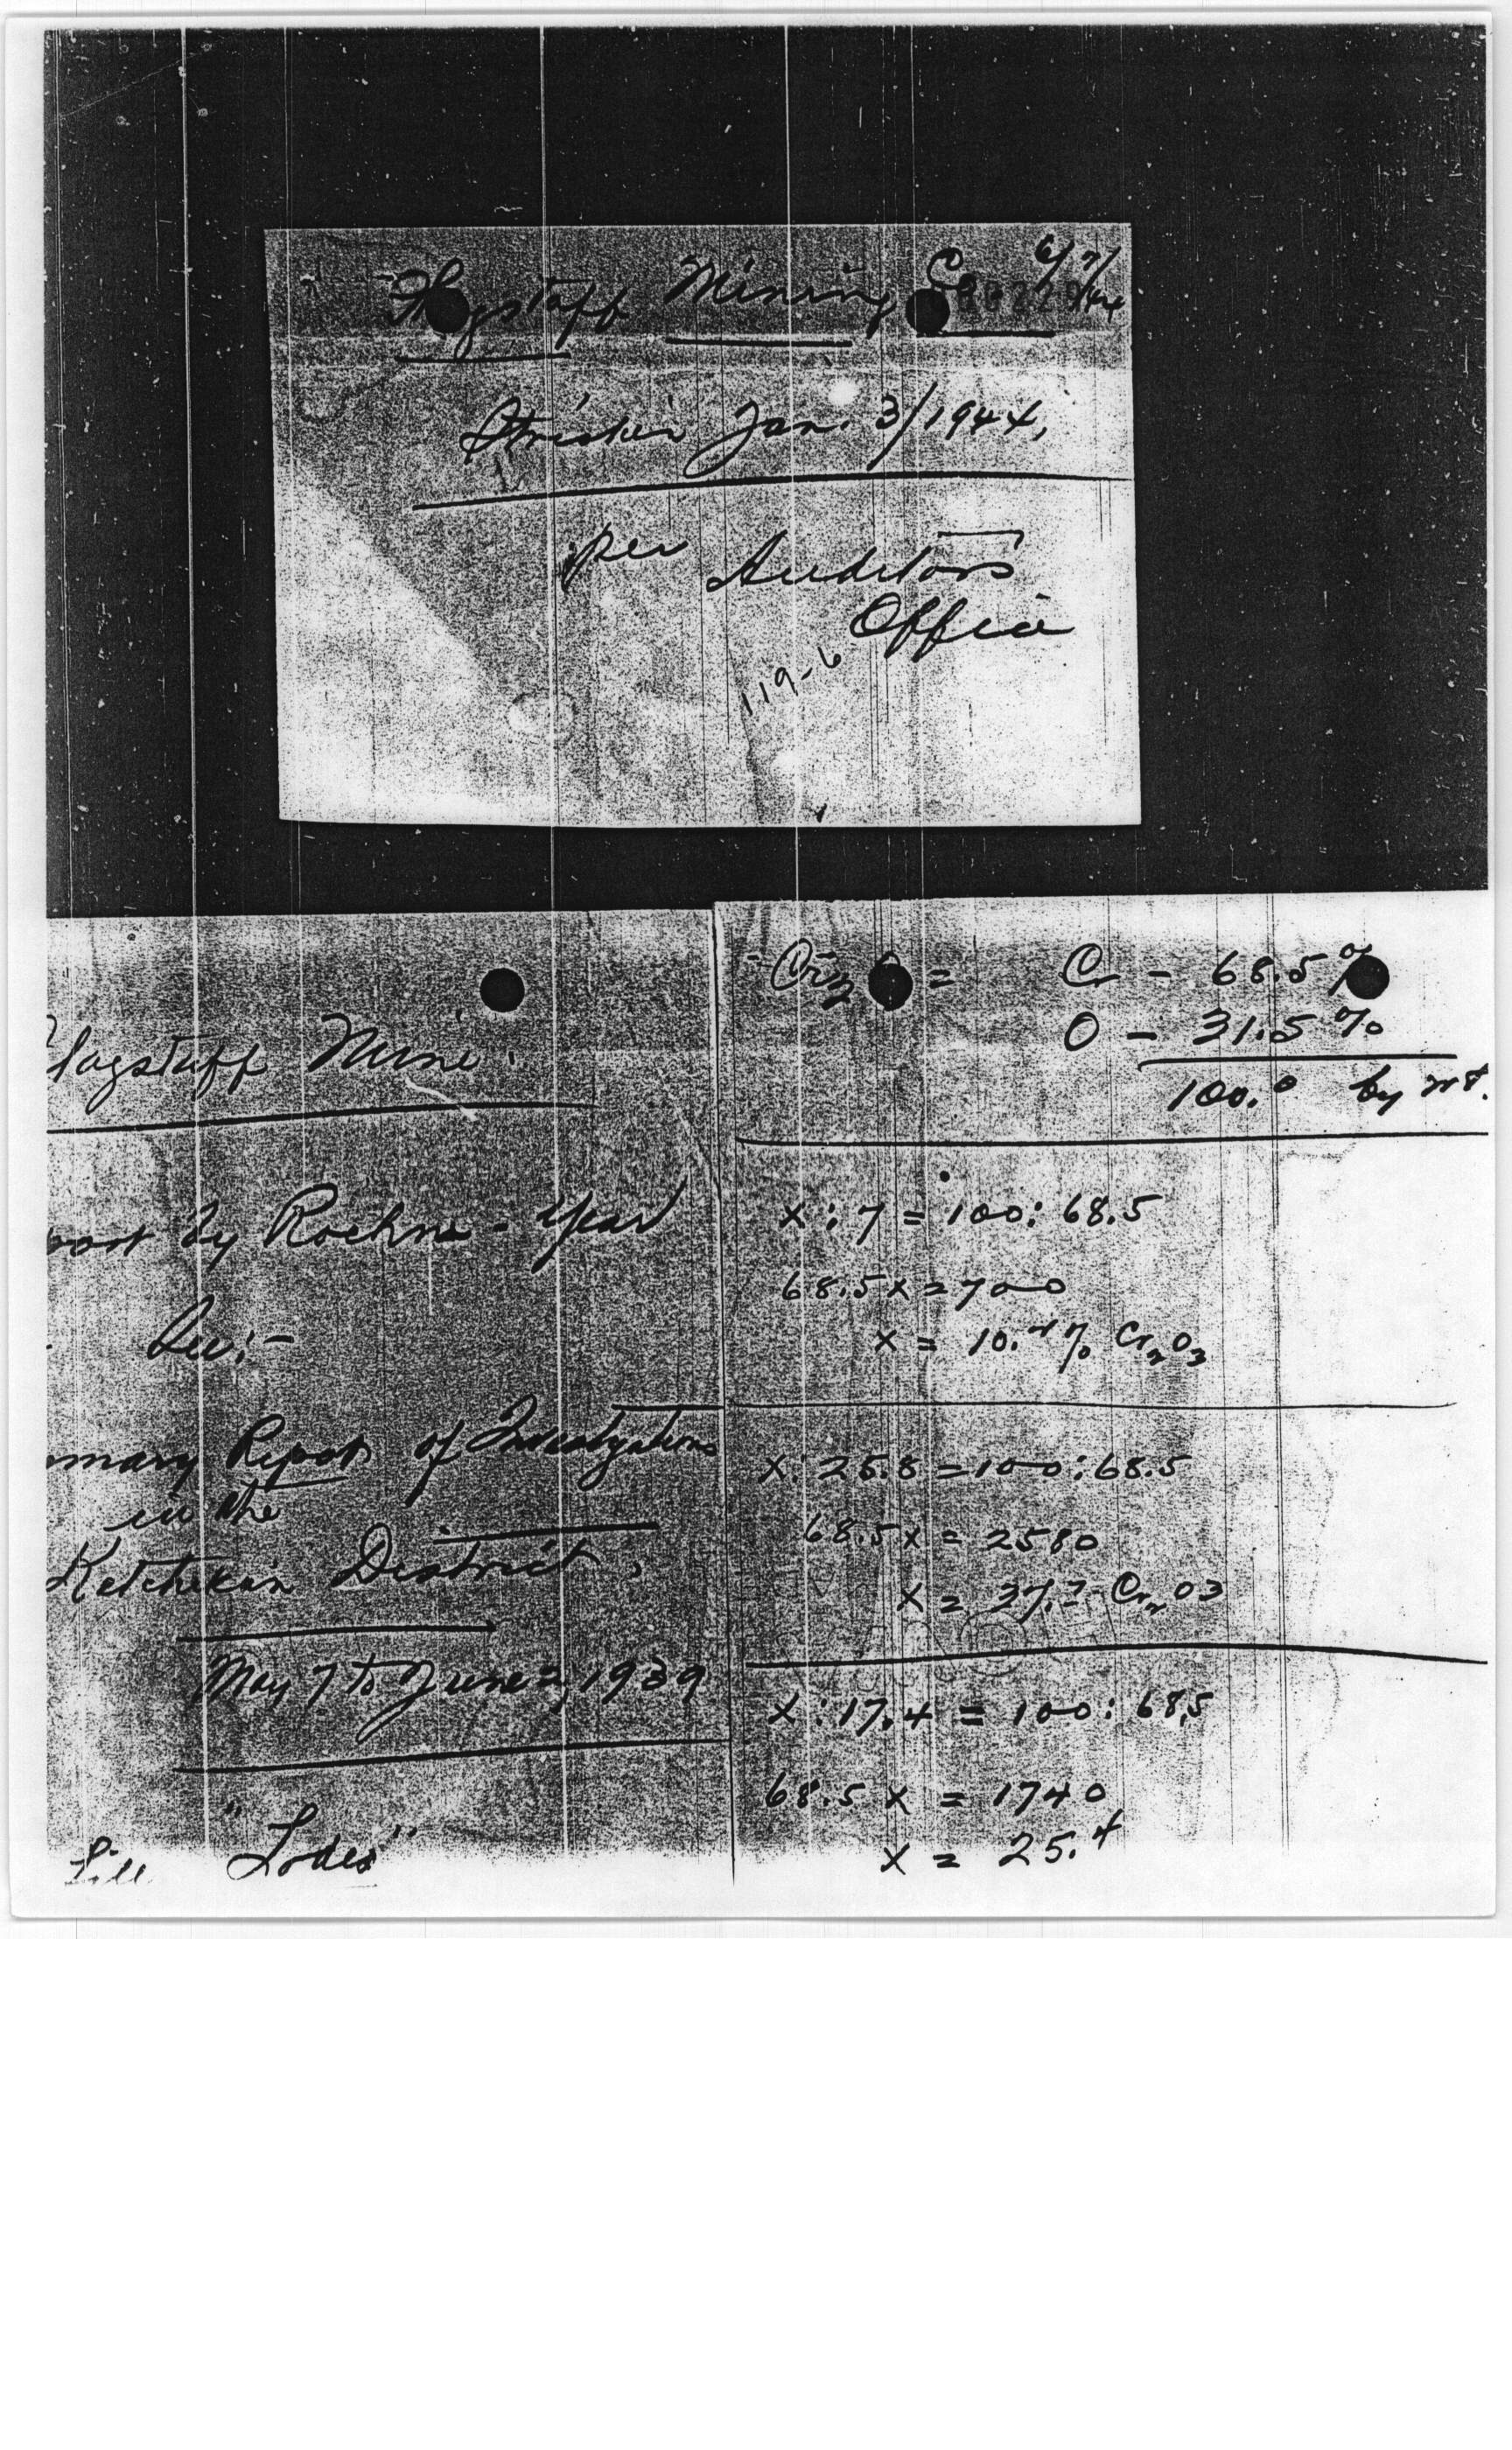 Flagstaff Mining Co. 6/7/44
Stricken Jan. 3/1944,
per Auditors
Office
119-6
lagstaff Mine.
by Roehm - Year
See:-
mmary Report of Investigations
in the
Ketchikan District,
May 7 to June 2, 1939
"Lodes"
Cr2 = Cr - 68.5 %
O - 31.5 %
100.0 by wt.
x : 7 = 100 : 68.5
68.5 x = 700
x = 10.2 % Cr2O3
x : 25.8 = 100 : 68.5
68.5 x = 2580
x = 37.7 Cr2O3
x : 17.4 = 100 : 68.5
68.5 x = 1740
x = 25.4